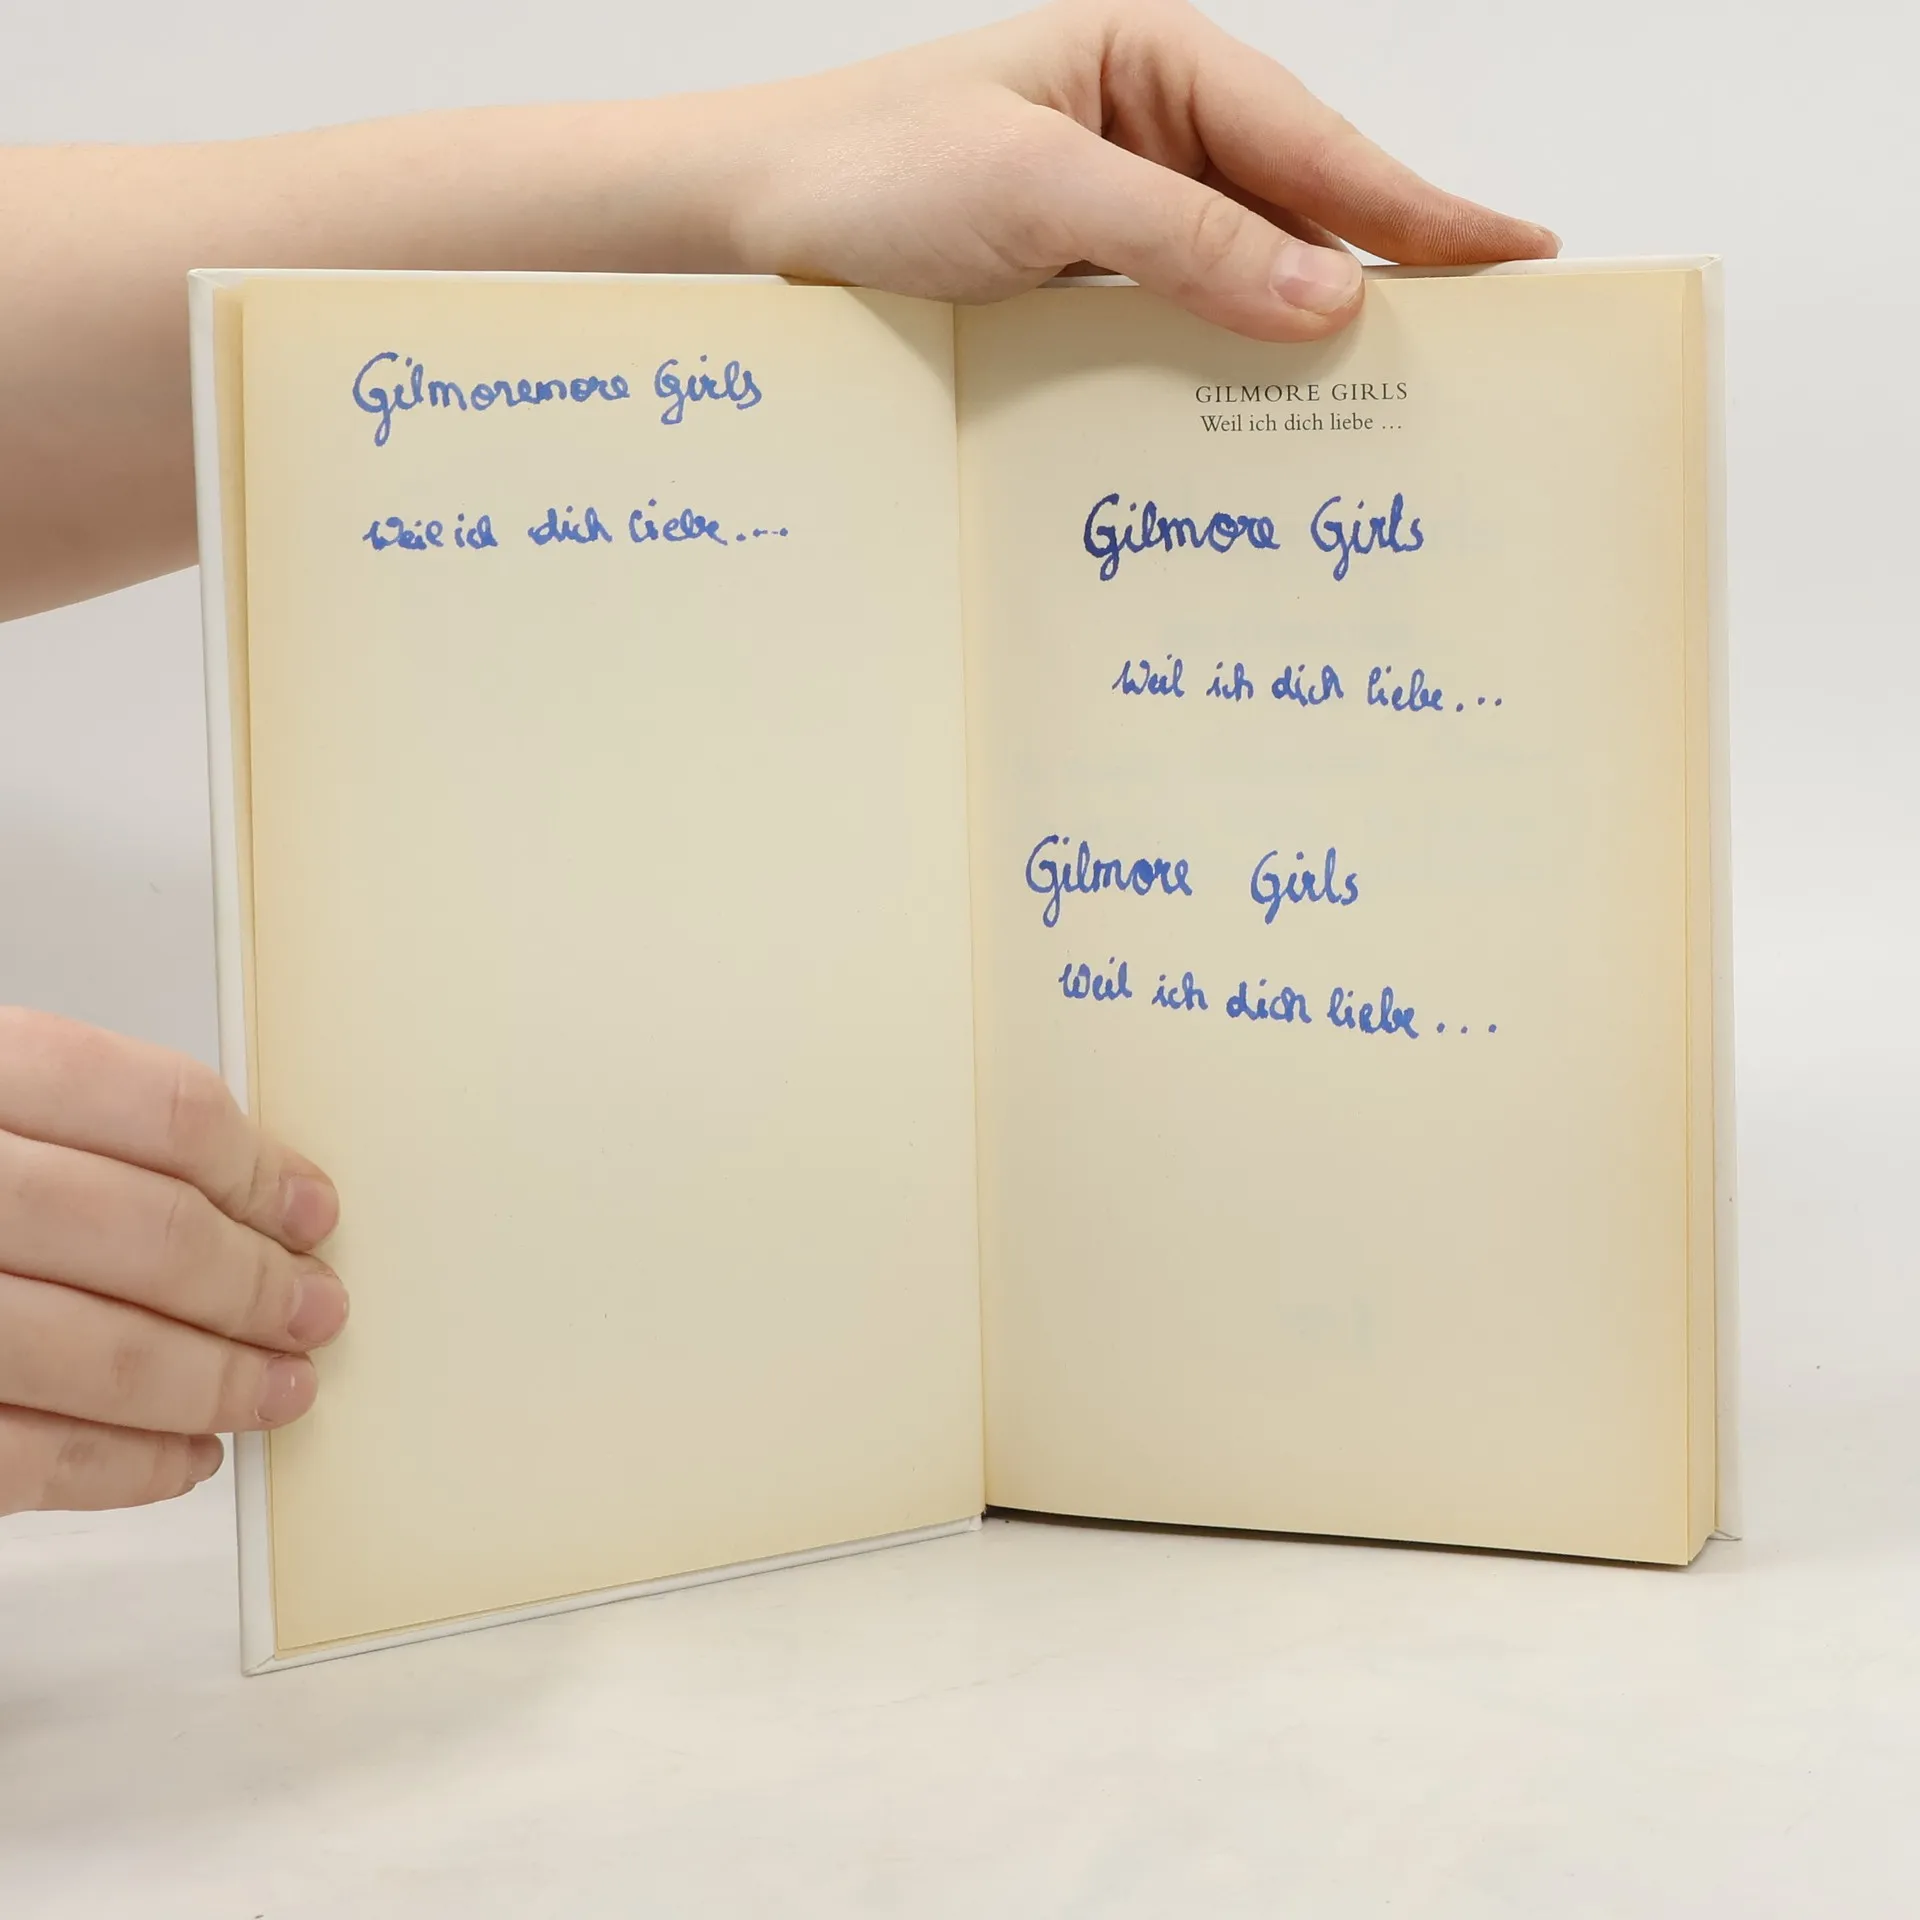 Gilmoremore Girls
Weil ich dich liebe....
GILMORE GIRLS
Weil ich dich liebe …
Gilmore Girls
Weil ich dich liebe...
Gilmore Girls
Weil ich dich liebe...